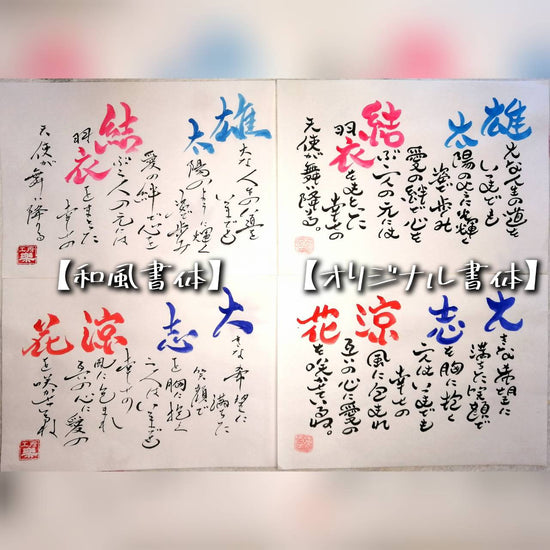 雄大な人生の道を
いつまでも
太陽のように輝く
姿で歩み
愛の絆で心を
結ぶ二人の元には
羽衣をまとった
幸せの
天使が舞い降りる
【和風書体】
雄大な人生の道を
いつまでも
太陽のように輝く
姿で歩み
愛の絆で心を
結ぶ二人の元には
羽衣をまとった
幸せの
天使が舞い降りる。
【オリジナル書体】
大きな希望に
満ちた
笑顔で
志を胸に抱く
二人はいつまでも
幸せの
涼風に包まれ
互いの心に愛の
花を咲かせ
大きな希望に
満ちた笑顔で
志を胸に抱く
二人はいつまでも
幸せの
涼風に包まれ
互いの心に愛の
花を咲かせ